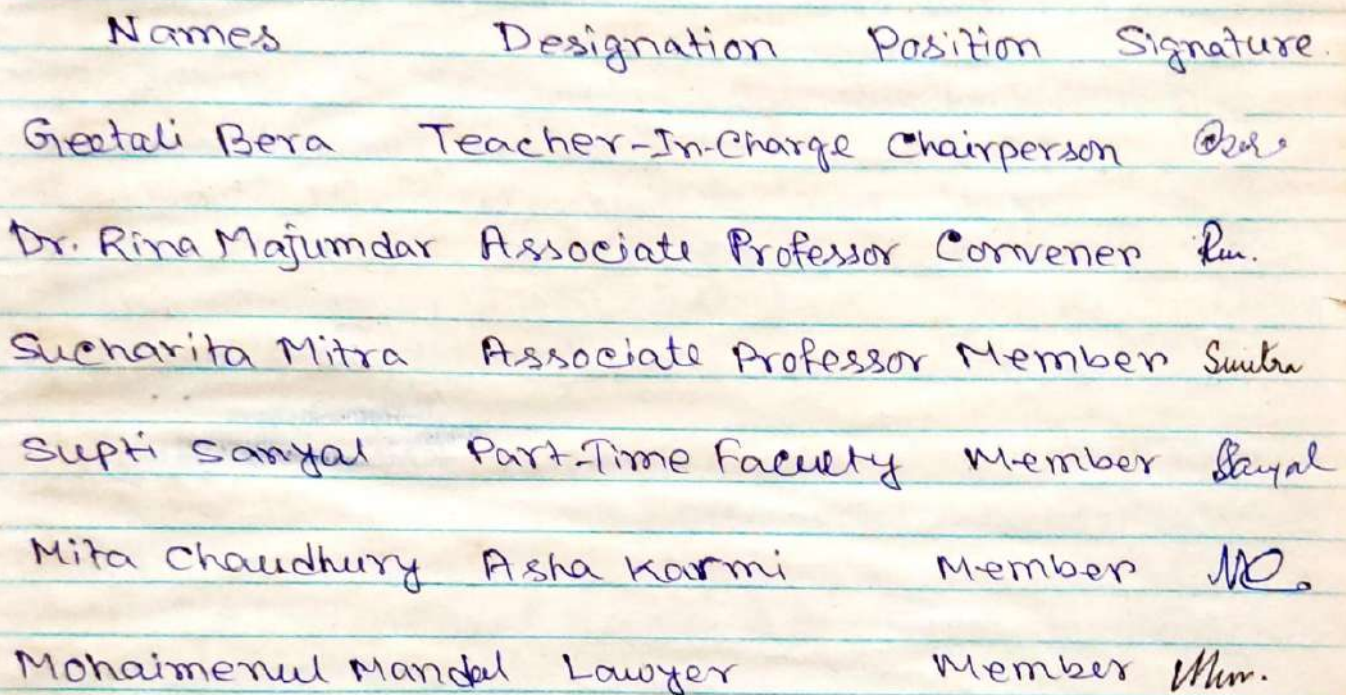 Names Designation Position Signature.
Geetali Bera Teacher-In-Charge Chairperson
Dr. Rina Majumdar Associate Professor Convener
Sucharita Mitra Associate Professor Member Smitra
Supti Sanyal Part-Time Faculty Member Sanyal
Mita Chaudhury Asha Karmi Member MC.
Mohaimenul Mandal Lawyer Member